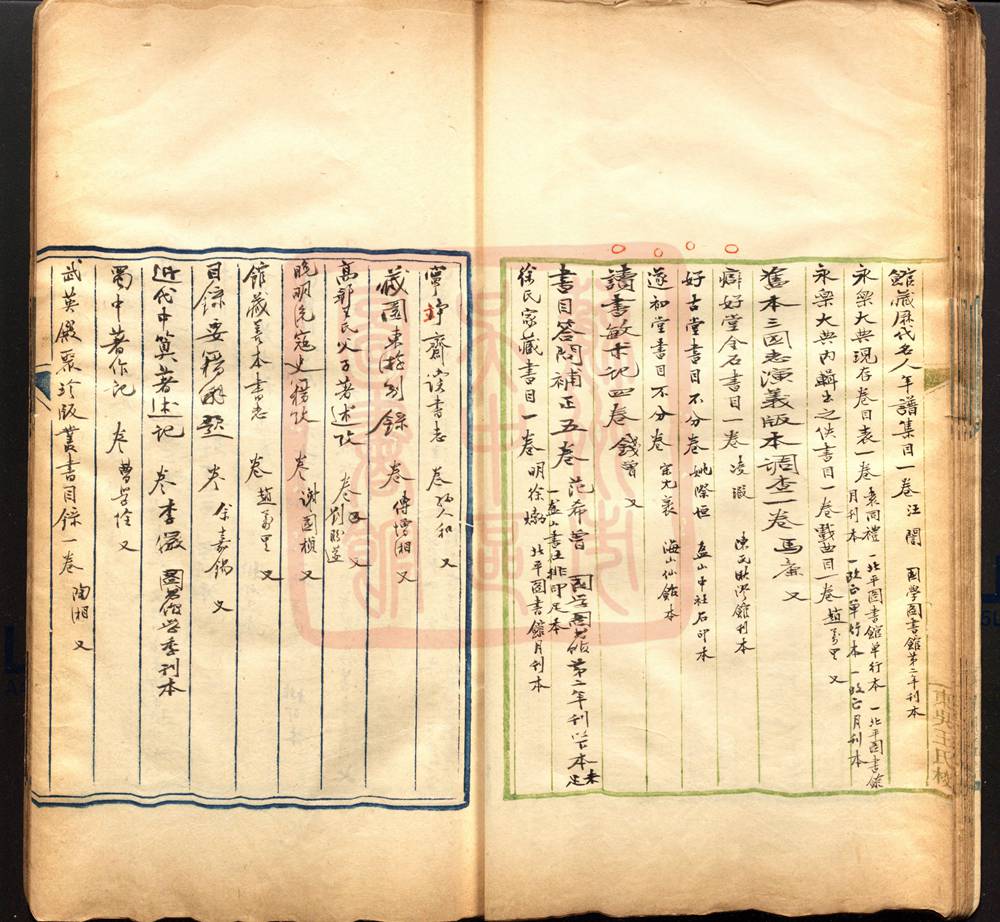 館藏歷代名人年譜集目一卷 汪誾 國學圖書館第二年刊本
永樂大典現存卷目表一卷 袁同禮 一北平圖書館單行本 一北平圖書館月刊本 一改正單行本 一改正月刊本
永樂大典內輯出之佚書目一卷 戲曲目一卷 趙萬里 又
舊本三國志演義版本調查一卷 馬廉 又
癖好堂金石書目一卷 凌瑕 館刊本
好古堂書目不分卷 姚際恒 盋山中社石印本
遂初堂書目不分卷 宋尤袤 海山仙館本
讀書敏求記四卷 錢曾 又
書目答問補正五卷 范希曾 國學圖書館第二年刊以下本未足 一盋山書社排印足本
徐氏家藏書目一卷 明徐𤊹 北平圖書館月刊本
齋讀書志 卷 人和 又
藏園東游別錄 卷 傅增相 又
高郵王氏父子著述攷 卷 劉盼遂 又
晚明流寇史籍攷 卷 謝國楨 又
館藏善本書志 卷 趙萬里 又
目錄要籍解題 卷 余嘉錫 又
近代中算著述記 卷 李儼 圖書館學季刊本
蜀中著作記 卷 曹學佺 又
武英殿聚珍版叢書目錄一卷 陶湘 又